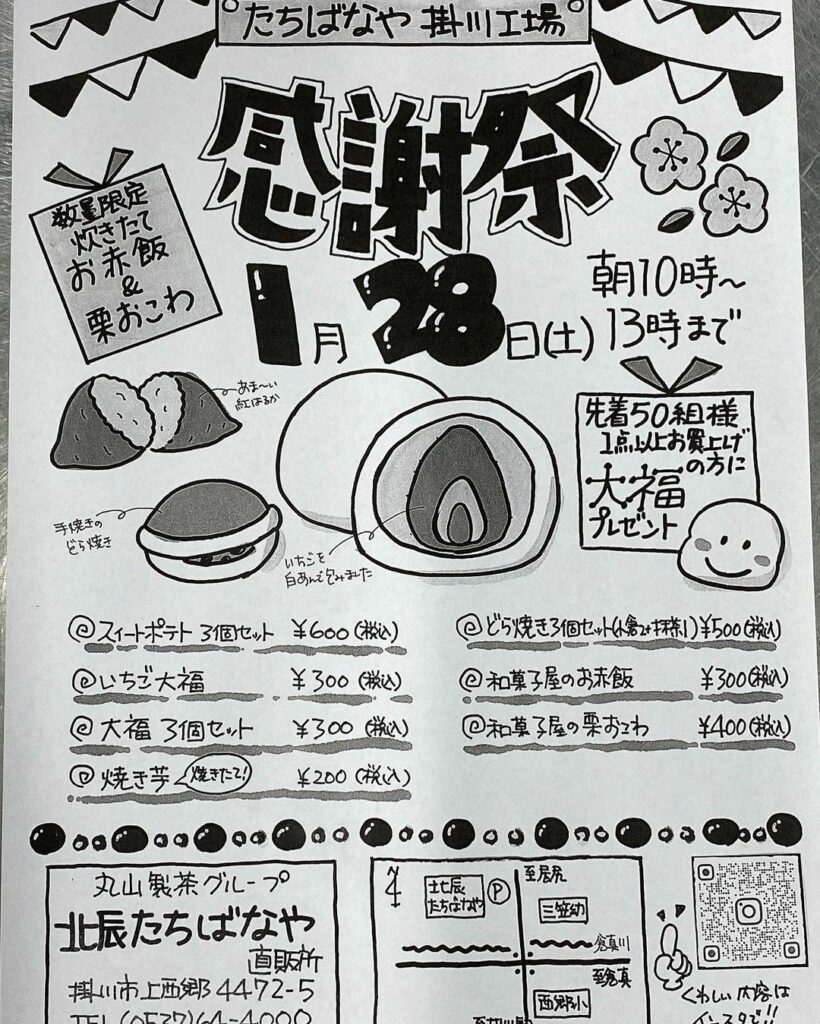 たちばなや 掛川工場
感謝祭
数量限定
炊きたて
お赤飯
&
栗おこわ
1月28日(土)
朝10時〜
13時まで
あま〜い
紅はるか
手焼きの
どら焼き
いちごを
白あんで包みました
先着50組様
1点以上お買上げ
の方に
大福
プレゼント
スイートポテト 3個セット ¥600(税込)
いちご大福 ¥300(税込)
大福 3個セット ¥300(税込)
焼き芋 焼きたて! ¥200(税込)
どら焼き3個セット(小倉2抹茶1)¥500(税込)
和菓子屋のお赤飯 ¥300(税込)
和菓子屋の栗おこわ ¥400(税込)
丸山製茶グループ
北辰たちばなや
直販所
掛川市上西郷4472-5
TEL(0537)64-4000
至居尻
北辰
たちばなや
P
三笠幼
倉真川
至倉真
西郷小
くわしい内容は
インスタで!!